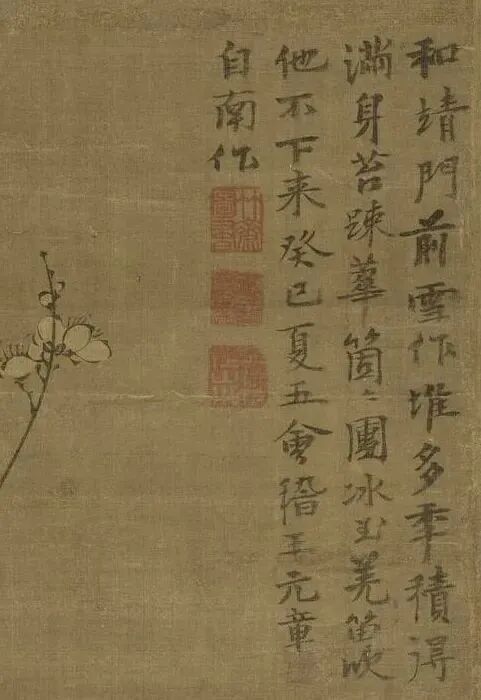 和靖門前雪作堆多秊積得
滿身苔踈華箇〻團冰玉羌笛吹
他不下来癸巳夏五會稽王元章
自南作
竹齋圖書